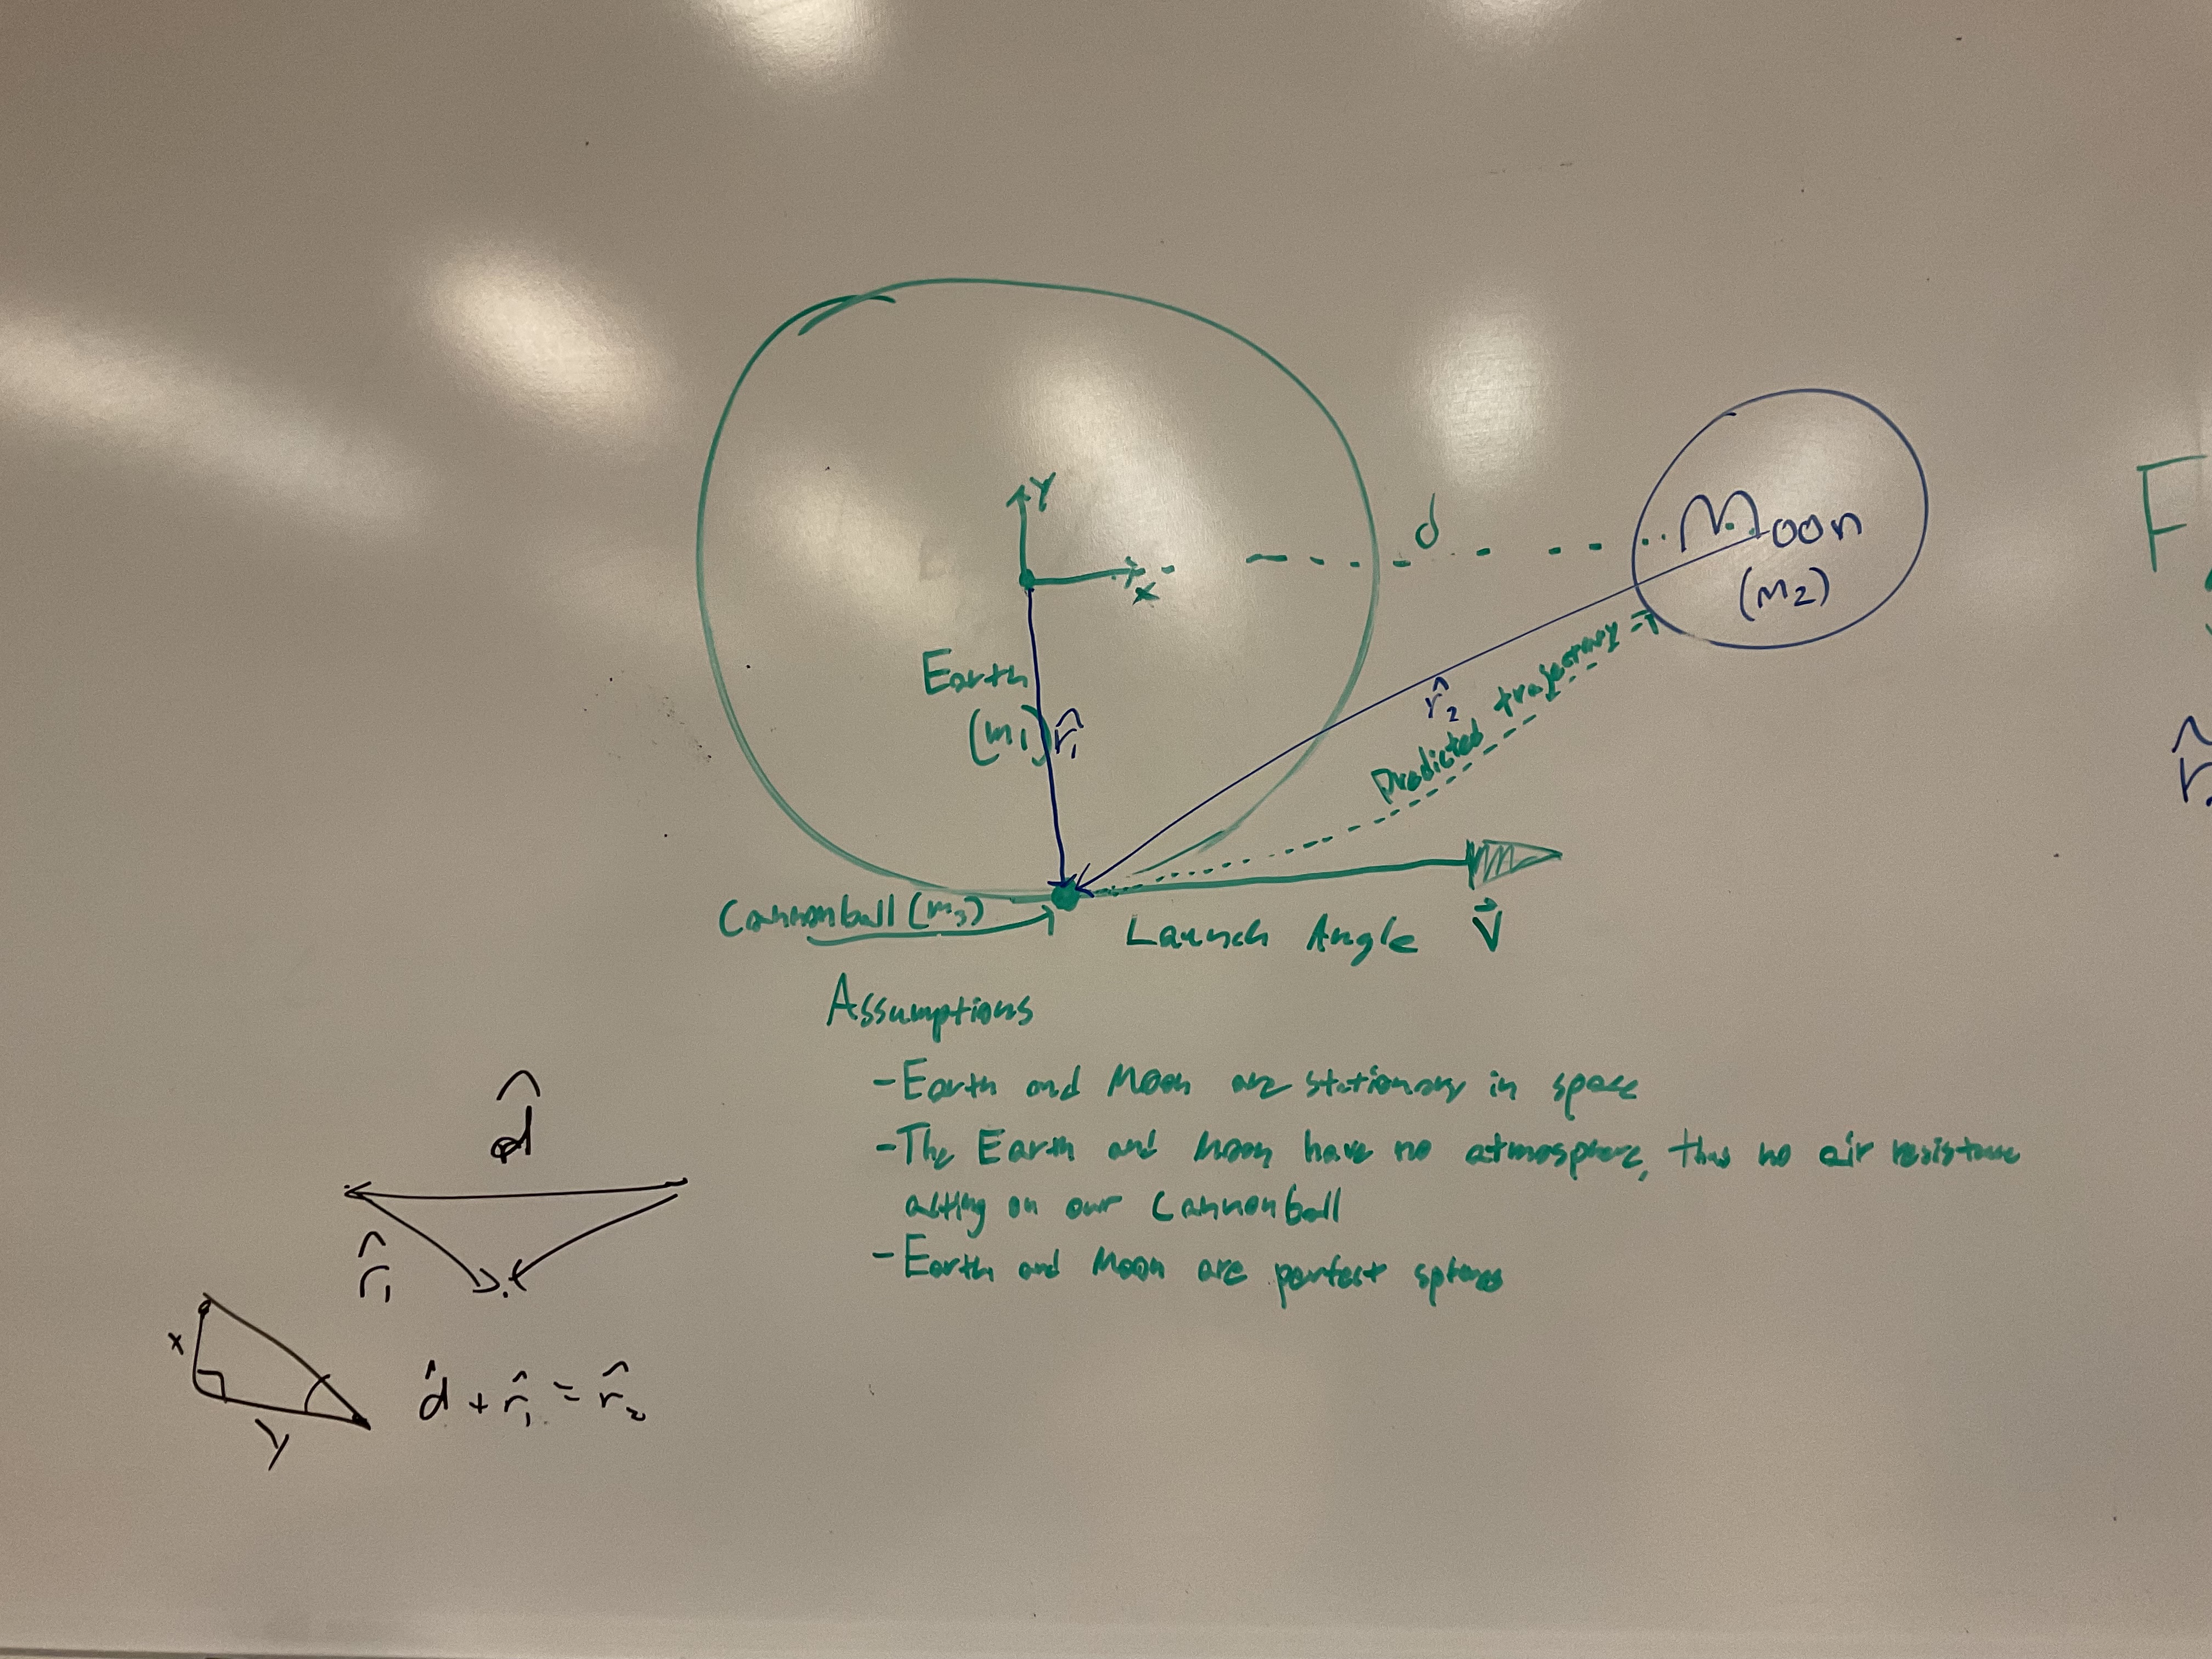 Y
d
x
Moon
(m2)
Earth
(m1)
r̂1
r̂2
Predicted trajectory
F
r̂
Cannonball (m3)
Launch Angle
V⃗
Assumptions
- Earth and Moon are stationary in space
- The Earth and Moon have no atmosphere, thus no air resistance
acting on our Cannonball
- Earth and Moon are perfect spheres
d̂
r̂1
x
y
d̂ + r̂1 = r̂2